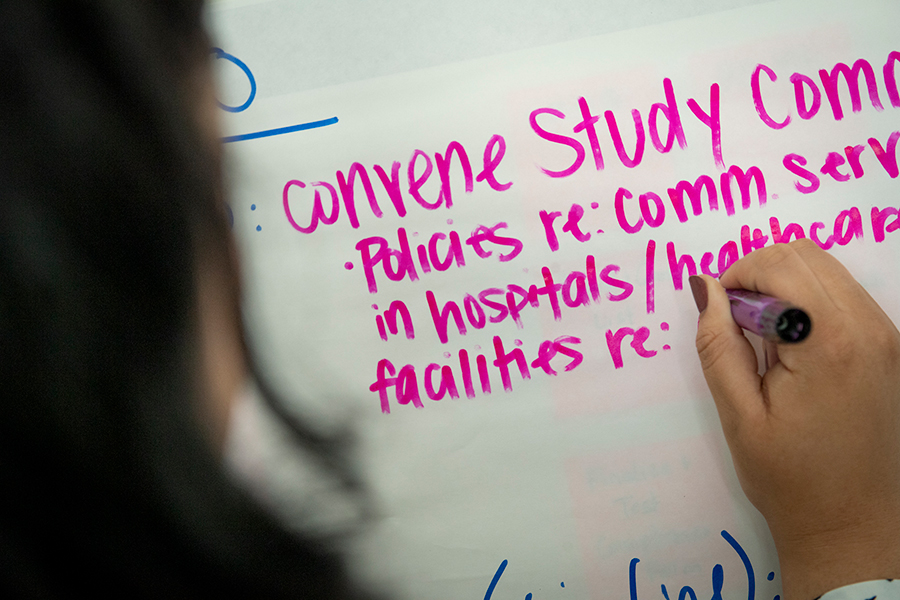 : Convene Study Comm
• Policies re: Comm. serv
in hospitals/healthcare
facilities re: